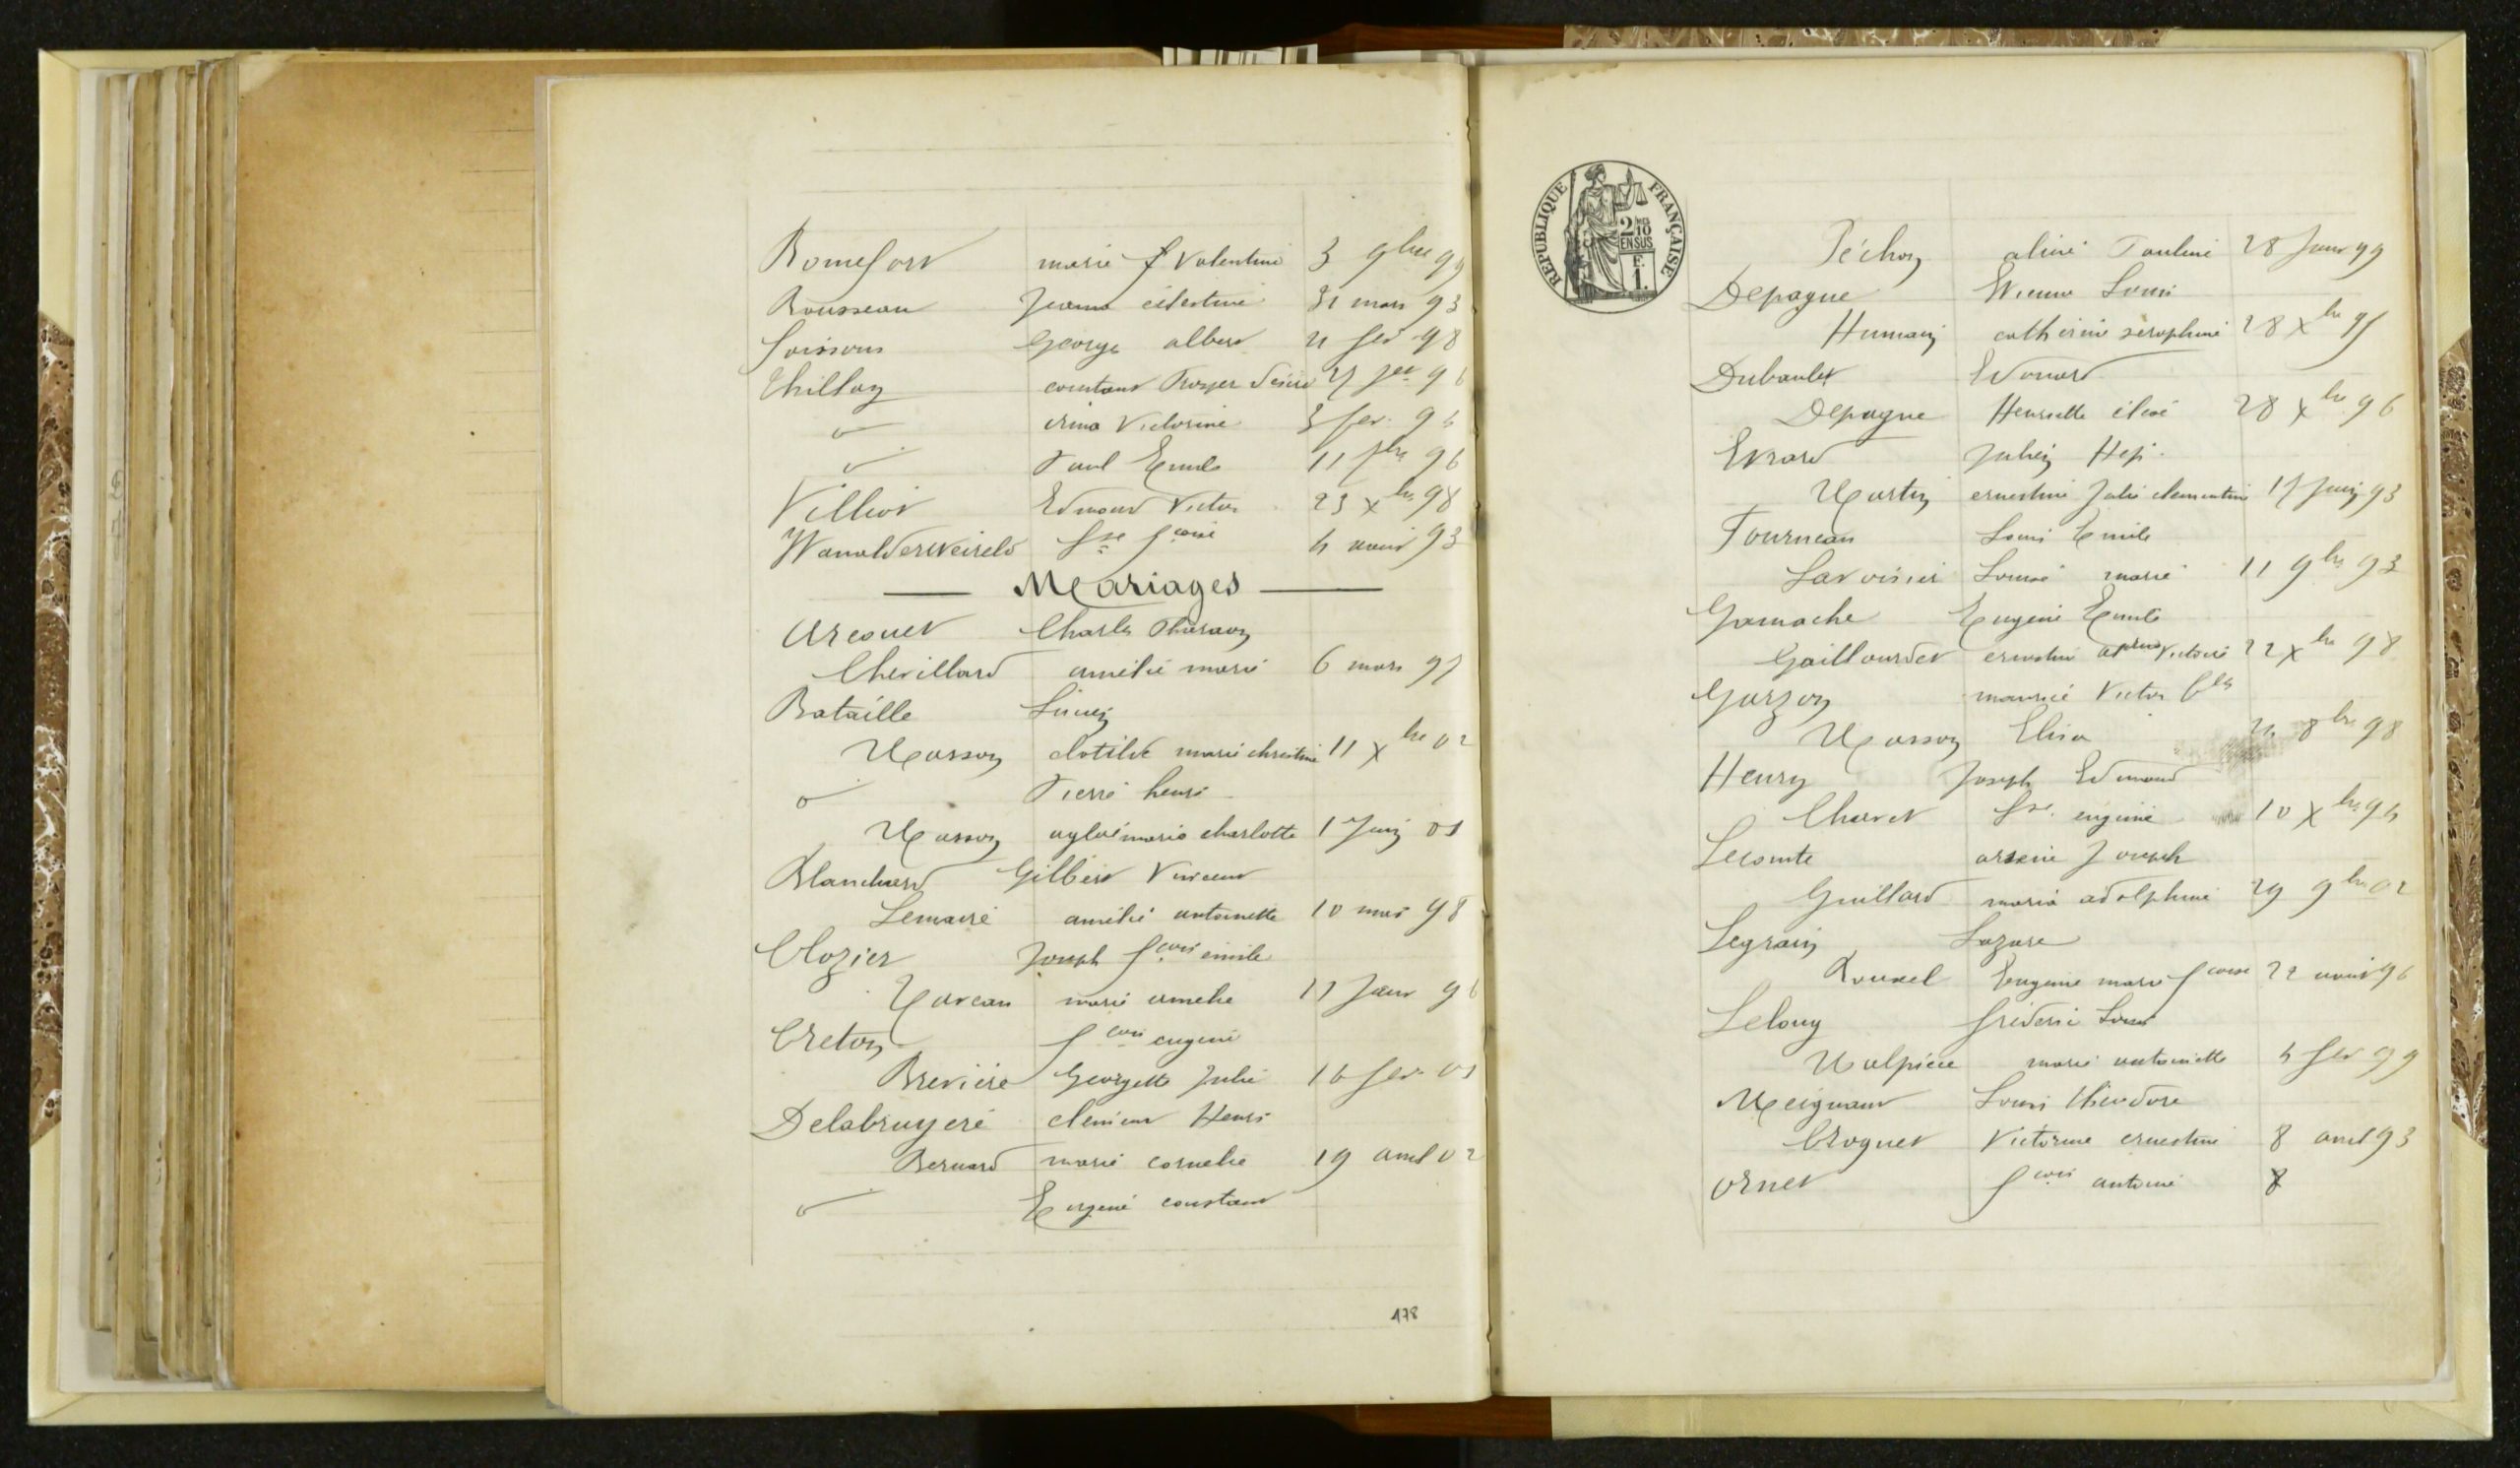 Romefort marie f Valentine 3 9bre 99
Rousseau Jeanne célestine 31 mars 93
Soissons George albert 21 fev 98
Thilloy constant Prosper Désiré 27 96
irma Victorine 3 fev. 96
Paul Emile 11 96
Villiot Edmond Victor 23 xbre 98
Wanalderweireld fse fcoise 4 aout 93
Mariages
Arcouet Charles
Chevillard amélie marie 6 mars 97
Bataille Lucien
Masson clotilde marie christine 11 xbre 02
Pierre henri
Masson aglaé marie charlotte 1 Juin 01
Blanchard Gilbert Vincent
Lemaire amélie antoinette 10 mai 98
Clozier Joseph fcois emile
Moreau marie amelie 17 Janv 96
Creton fcois eugène
Brevière Georgette Julie 16 fev. 01
Delabruyere clement Henri
Bernard marie cornelie 19 avril 02
Eugène constant
178
REPUBLIQUE FRANÇAISE
2/10
EN SUS
F.
1.
Péchon aline Pauline 28 Janv 99
Depagne Etienne Louis
Humain catherine seraphine 28 xbre 95
Dubaulet Edouard
Depagne Henriette élisé 28 xbre 96
Evrard Julien Hip.
Martin ernestine Julie clementine 17 Juin 93
Fourneau Louis Emile
Lavoisier Louise marie 11 9bre 93
Gamache Eugène Emile
Gaillourdet ernestine Victoire 22 xbre 98
Garzon maurice Victor Cles
Masson Elisa 8bre 98
Henry Joseph Edmond
Charet fse. eugénie 10 xbre 94
Lecomte arsène Joseph
Guillard maria adolphine 29 9bre 02
Legrain Lazare
Rouxel Eugenie marie fcoise 22 aout 96
Lelong fréderic Louis
Malpièce marie antoinette 4 fev 99
Meignant Louis théodore
Croquet Victorine ernestine 8 avril 93
Ornet fcois antoine 8